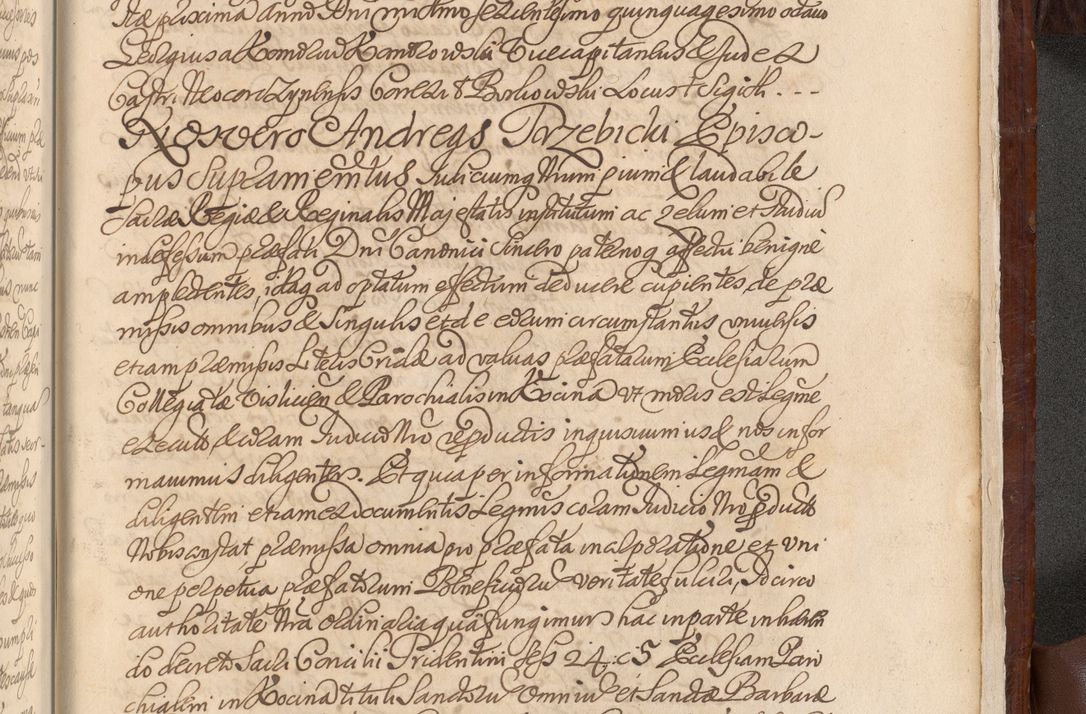 Itae proxima anno Dni millmo sexcentesimo quinquagesimo octavo
Georgius a Komorow Komorowski Vicecapitaneus & Judex
Castri Neocorczynensis Correxit Borkowski Locus Sigilli . - -
Nos vero Andreas Trzebicki Episco-
pus Supramentus Judiciumq Nrum pium & laudabile
Sacrae Regiae & Reginalis Majestatis institutum ac zelum et studiu
indefessum praefati Dni Canonici sincero paternoq affectu benigne
amplectentes, idq ad optatum effectum deducere cupientes, de prae
missis omnibus & singulis et de eorum circumstantiis universis
etiam praemissis Literis Cridae ad valvas praefatarum Ecclesiarum
Collegiatae Vislicien & Parochialis in Kocina ut moris est Legme
executis, & coram Judicio Nro reproductis inquisivimus & nos infor
mavimus diligenter. Et quia per informationem Legmam &
diligentem etiam ex documentis Legmis coram Judicio Nro product
Nobis constat praemissa omnia pro praefata incorporatione et uni
one perpetua praefatarum Beneficioru veritate fulciri, Idcirco
authoritate Nra ordinaria qua fungimur hac in parte inhaeren
do decreto Sacri Concilii Tridentini Sess 24. c 5 Ecclesiam Paro
chialem in Kocina tituli Sanctoru Omniu et Sanctae Barbarae